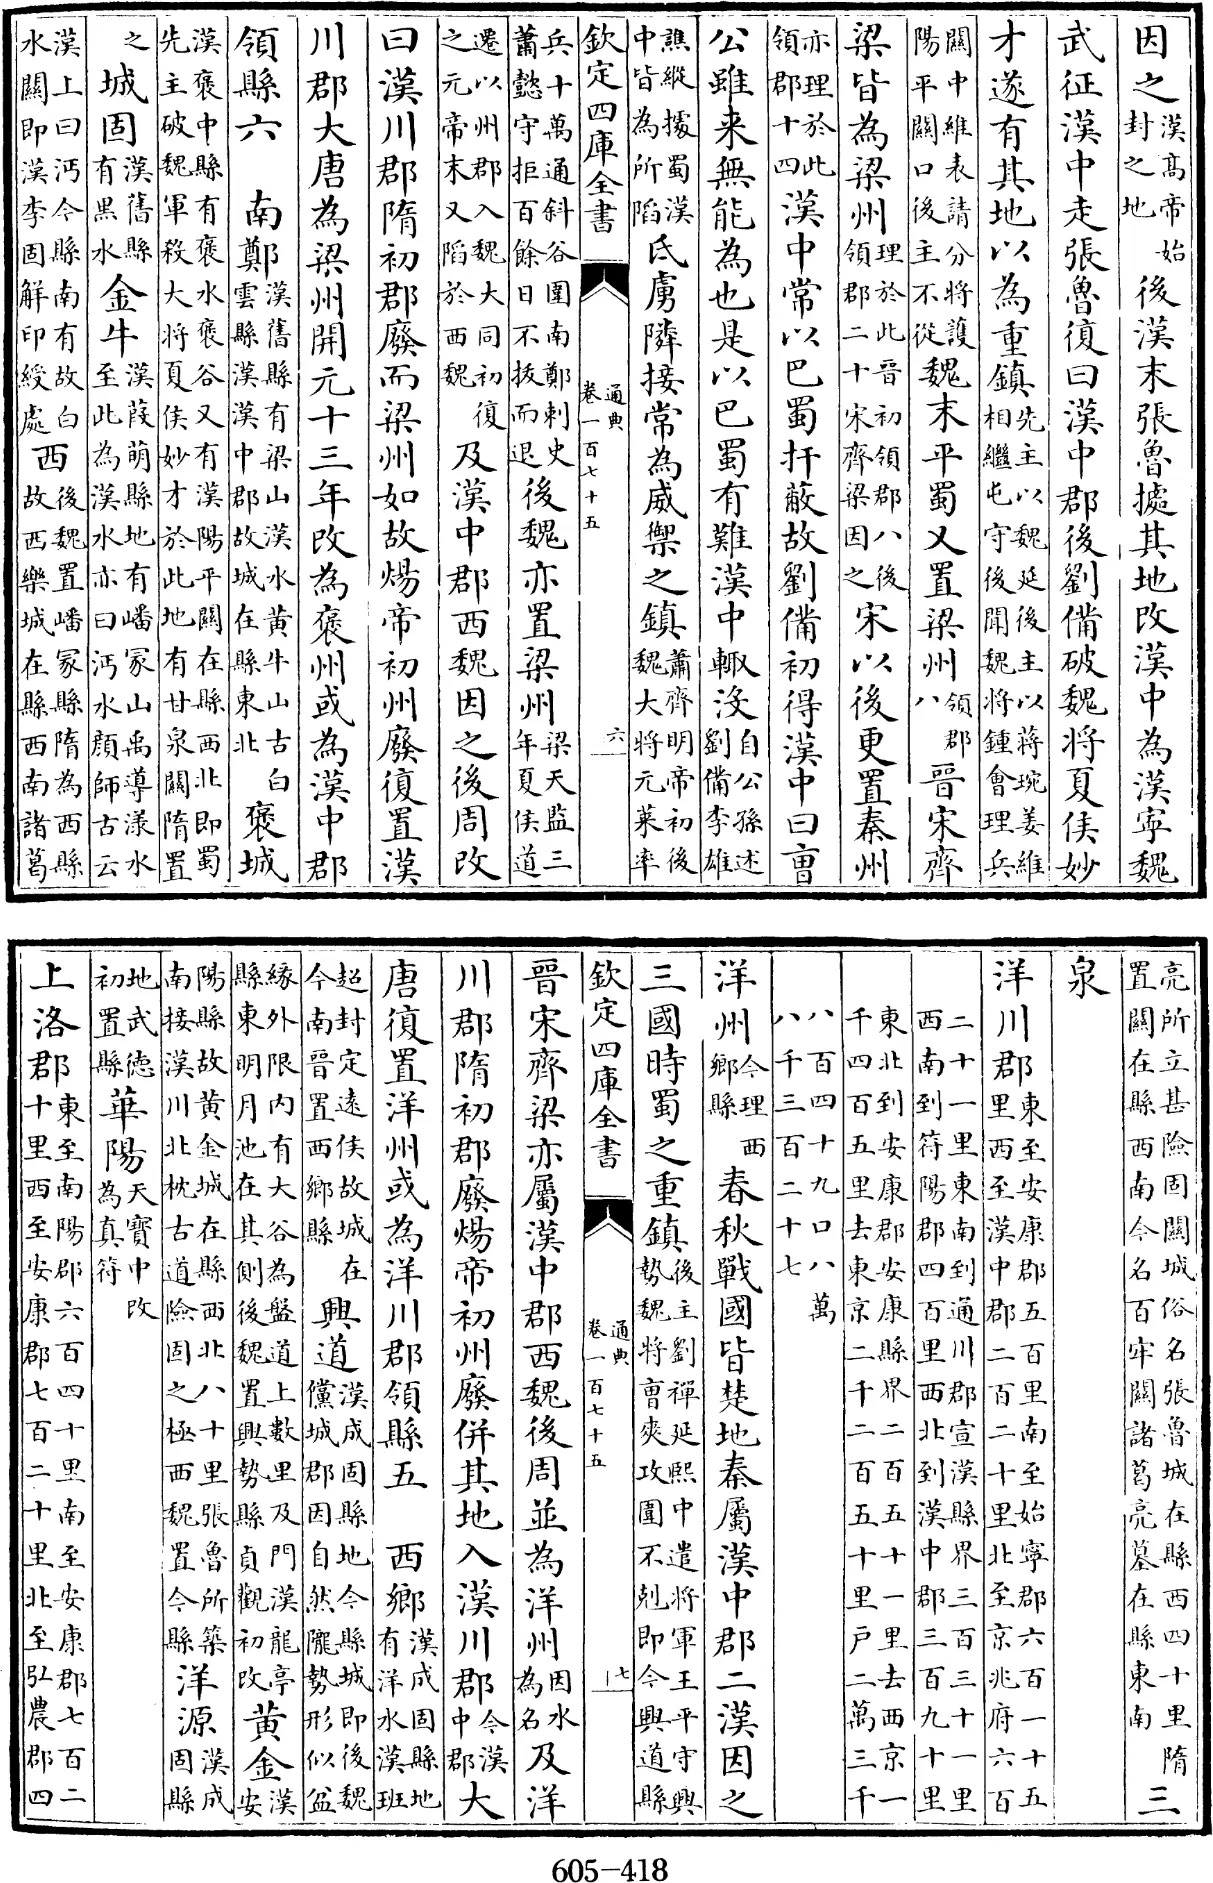 因之漢高帝始封之地後漢末張魯據其地改漢中為漢寧魏
武征漢中走張魯復曰漢中郡後劉備破魏將夏侯妙
才遂有其地以為重鎮先主以魏延後主以蔣琬姜維相繼屯守後聞魏將鍾會理兵
關中維表請分將護陽平關口後主不從魏末平蜀又置梁州領郡八晉宋齊
梁皆為梁州理於此晉初領郡八後領郡二十宋齊梁因之宋以後更置秦州
亦理於此領郡十四漢中常以巴蜀扞蔽故劉備初得漢中曰曹
公雖来無能為也是以巴蜀有難漢中輒没自公孫述劉備李雄
譙縱據蜀漢中皆為所陷氐虜隣接常為威禦之鎮蕭齊明帝初後魏大將元英率
欽定四庫全書 通典卷一百七十五 六
兵十萬通斜谷圍南鄭刺史蕭懿守拒百餘日不拔而退後魏亦置梁州梁天監三年夏侯道
遷以州郡入魏大同初復之元帝末又陷於西魏及漢中郡西魏因之後周改
曰漢川郡隋初郡廢而梁州如故煬帝初州廢復置漢
川郡大唐為梁州開元十三年改為褒州或為漢中郡
領縣六 南鄭漢舊縣有梁山漢水黄牛山古白雲縣漢漢中郡故城在縣東北褒城
漢褒中縣有褒水褒谷又有漢陽平關在縣西北即蜀先主破魏軍殺大將夏侯妙才於此地有甘泉關隋置
之城固漢舊縣有黒水金牛漢葭萌縣地有嶓冢山禹導漾水至此為漢水亦曰沔水顔師古云
漢上曰沔今縣南有故白水關即漢李固解印綬處西後魏置嶓冢縣隋為西縣故西樂城在縣西南諸葛
亮所立甚險固關城俗名張魯城在縣西四十里隋置關在縣西南今名百牢關諸葛亮墓在縣東南三
泉
洋川郡東至安康郡五百里南至始寧郡六百一十五里西至漢中郡二百二十里北至京兆府六百
二十一里東南到通川郡宣漢縣界三百三十一里西南到符陽郡四百里西北到漢中郡三百九十里
東北到安康郡安康縣界二百五十一里去西京一千四百五里去東京二千二百五十里戸二萬三千
八百四十九口八萬八千三百二十七
洋州今理西鄉縣春秋戰國皆楚地秦屬漢中郡二漢因之
三國時蜀之重鎮後主劉禪延熙中遣將軍王平守興勢魏將曹爽攻圍不剋即今興道縣
欽定四庫全書 通典卷一百七十五 七
晉宋齊梁亦屬漢中郡西魏後周並為洋州因水為名及洋
川郡隋初郡廢煬帝初州廢併其地入漢川郡今漢中郡大
唐復置洋州或為洋川郡領縣五 西鄉漢成固縣地有洋水漢班
超封定遠侯故城在今南晉置西鄉縣興道漢成固縣地今縣城即後魏儻城郡因自然隴勢形似盆
緣外限内有大谷為盤道上數里及門漢龍亭縣東明月池在其側後魏置興勢縣貞觀初改黄金漢安
陽縣故黄金城在縣西北八十里張魯所築南接漢川北枕古道險固之極西魏置今縣洋源漢成固縣
地武德初置縣華陽天寶中改為真符
上洛郡東至南陽郡六百四十里南至安康郡七百二十里西至安康郡七百二十里北至弘農郡四
605-418